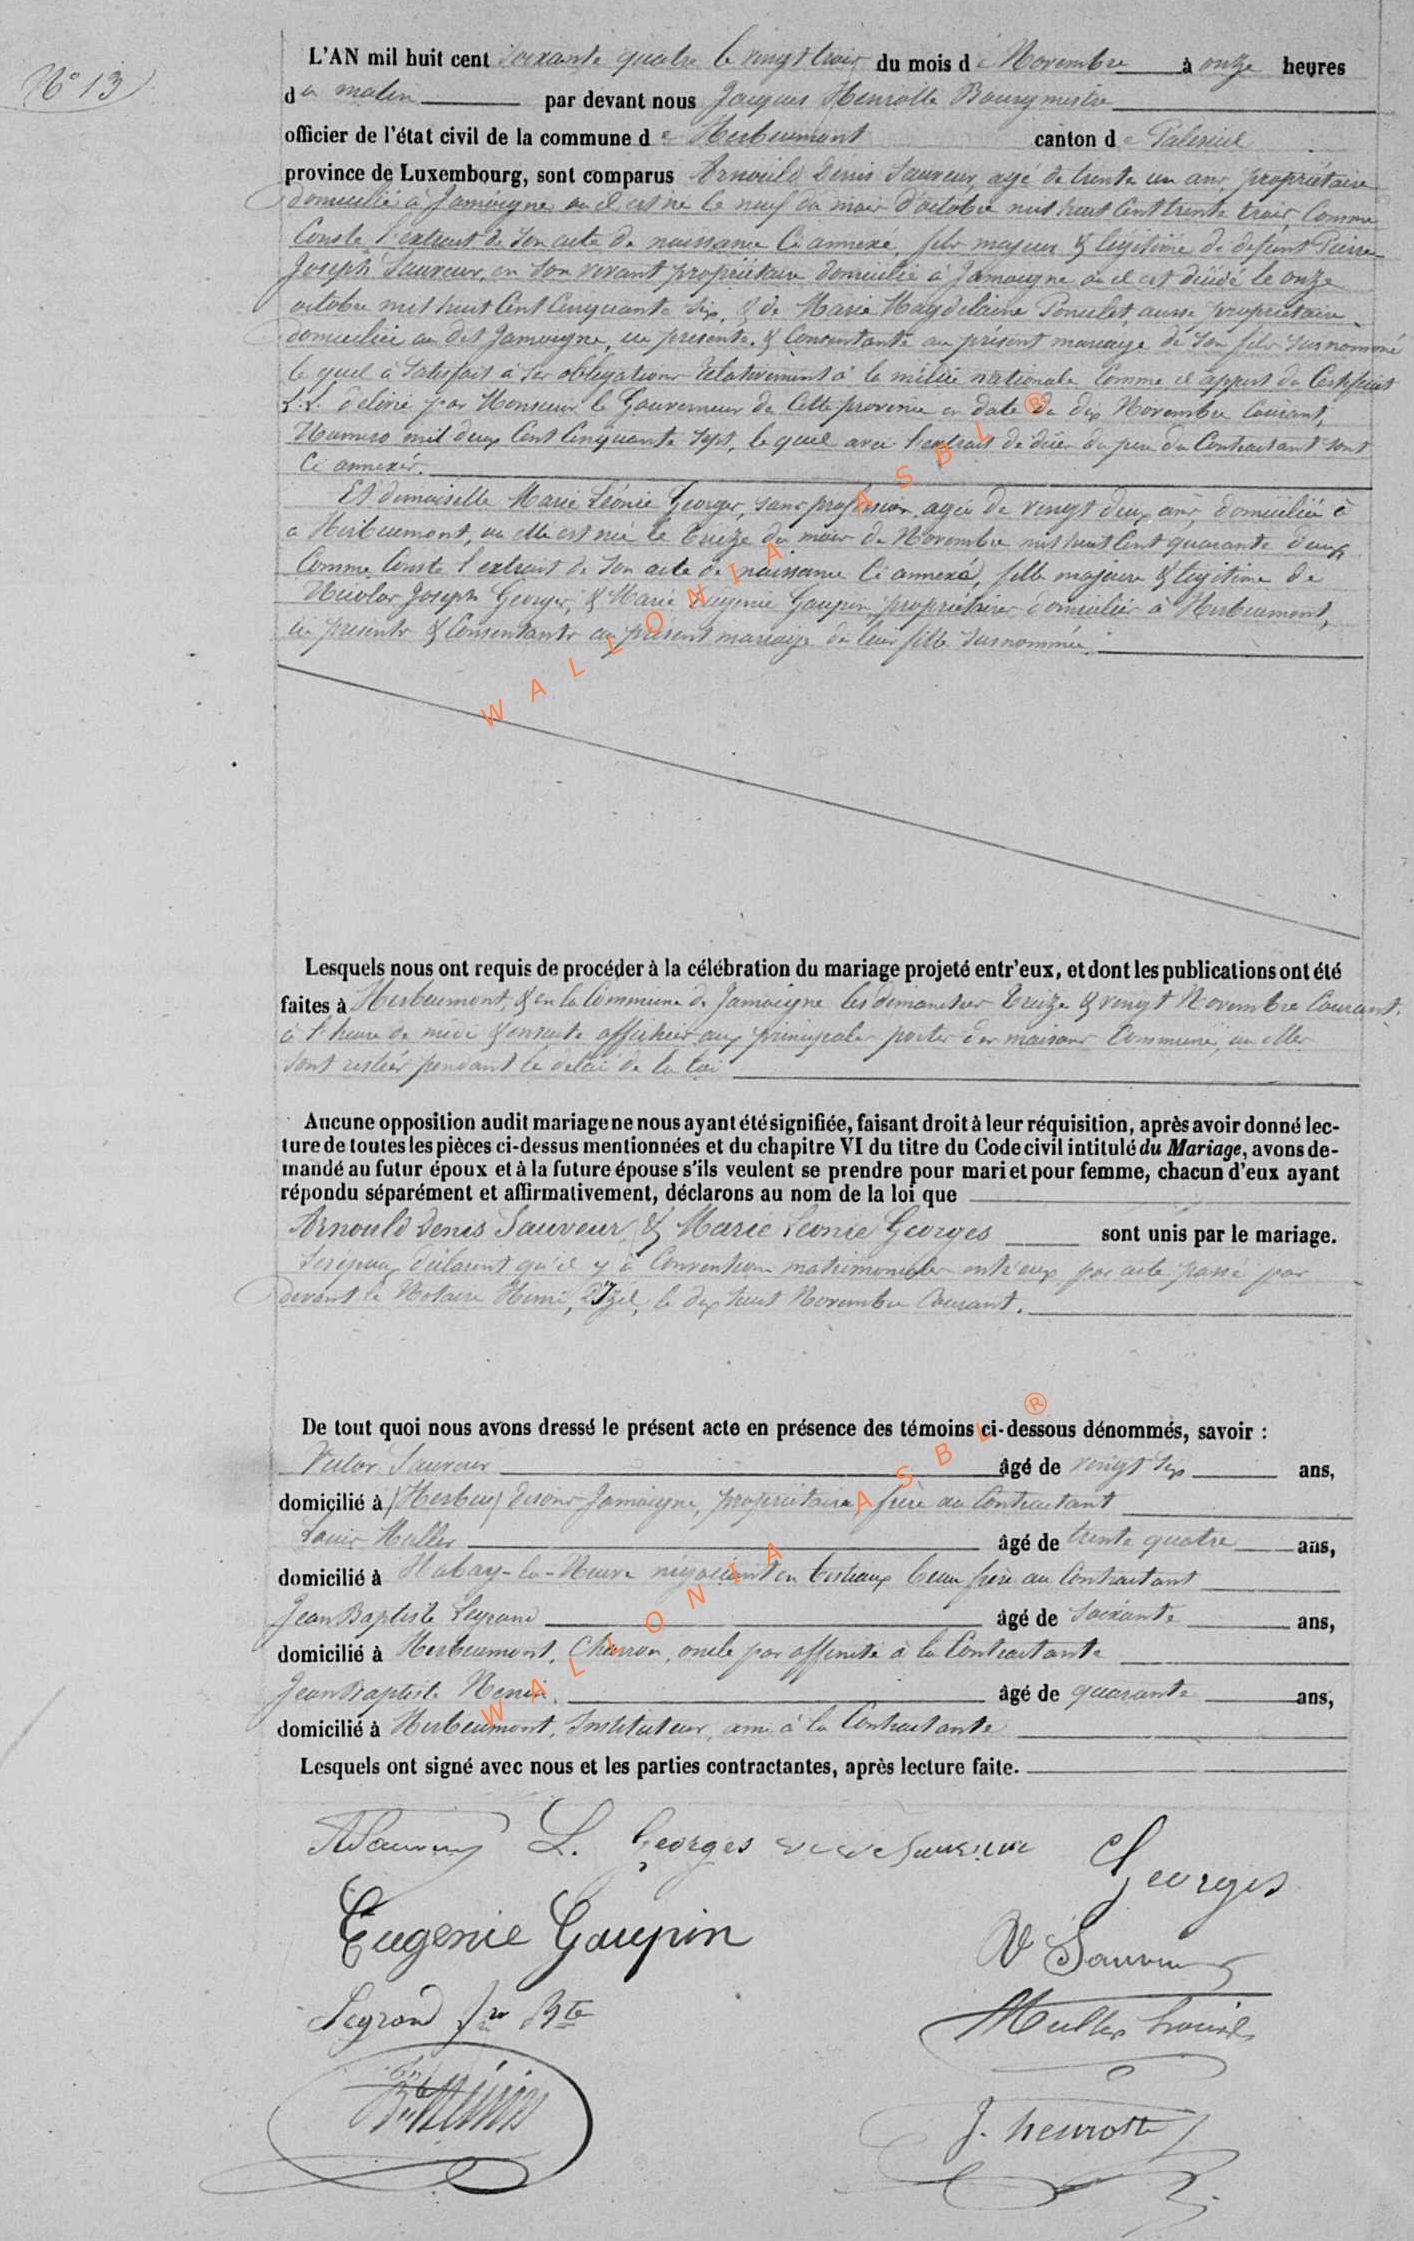 N° 13
L'AN mil huit cent soixante quatre le vingt trois du mois de Novembre à onze heures
du matin par devant nous Jacques Henrotte Bourgmestre
officier de l'état civil de la commune de Herbeumont canton de Paliseul
province de Luxembourg, sont comparus Arnould Denis Sauveur, agé de trente un ans, propriétaire
domicilié à Jamoigne où il est né le neuf du mois d'octobre mil huit cent trente trois, comme
conste l'extrait de son acte de naissance ci annexé, fils majeur & légitime de defunt Pierre
Joseph Sauveur, en son vivant propriétaire domicilié à Jamoigne où il est décédé le onze
octobre mil huit cent cinquante six, & de Marie Magdelaine Poncelet, aussi propriétaire
domiciliée au dit Jamoigne, ici présente & consentante au présent mariage de son fils susnommé
le quel à satisfait à ses obligations relativement à la milice nationale comme il appert du certificat
L.L. délivré par Monsieur le Gouverneur de cette province en date du dix Novembre courant,
Numero mil deux cent cinquante sept, le quel avec l'extrait de décès du père du contractant sont
ci annexés.
Et demoiselle Marie Léonie Georges, sans profession, agée de vingt deux ans, domiciliée à
a Herbeumont, où elle est née le treize du mois de Novembre mil huit cent quarante deux
comme conste l'extrait de son acte de naissance ci annexé, fille majeure & légitime de
Nicolas Joseph Georges, & Marie Eugenie Gaupin, propriétaires domiciliés à Herbeumont,
ici presents & consentants au présent mariage de leur fille susnommée.
Lesquels nous ont requis de procéder à la célébration du mariage projeté entr'eux, et dont les publications ont été
faites à Herbeumont, & en la commune de Jamoigne les dimanches treize & vingt Novembre courant,
à l'heure de midi & ensuite affichées aux principales portes des maisons commune, où elles
sont restées pendant le délai de la loi
Aucune opposition audit mariage ne nous ayant été signifiée, faisant droit à leur réquisition, après avoir donné lec-
ture de toutes les pièces ci-dessus mentionnées et du chapitre VI du titre du Code civil intitulé du Mariage, avons de-
mandé au futur époux et à la future épouse s'ils veulent se prendre pour mari et pour femme, chacun d'eux ayant
répondu séparément et affirmativement, déclarons au nom de la loi que
Arnould Denis Sauveur & Marie Leonie Georges sont unis par le mariage.
Les époux déclarent qu'il y à conventions matrimoniales entr'eux par acte passé par
devant le Notaire le dix huit Novembre courant.
De tout quoi nous avons dressé le présent acte en présence des témoins ci-dessous dénommés, savoir :
Victor Sauveur âgé de vingt six ans,
domicilié à (Herbeu) disons Jamoigne, propriétaire, frère au contractant
Louis Muller âgé de trente quatre ans,
domicilié à Habay-la-Neuve négociant en bestiaux beau frère au contractant
Jean Baptiste Legrand âgé de soixante ans,
domicilié à Herbeumont, Charron, oncle par affinité à la contractante
Jean Baptiste âgé de quarante ans,
domicilié à Herbeumont, Instituteur, ami à la contractante
Lesquels ont signé avec nous et les parties contractantes, après lecture faite.
ADSauveur L. Georges Sauveur Georges
Eugenie Gaupin
V Sauveur
Legrand Jn Bte
Muller Louis
J. henrotte
WALLONIA ASBL ®
WALLONIA ASBL ®